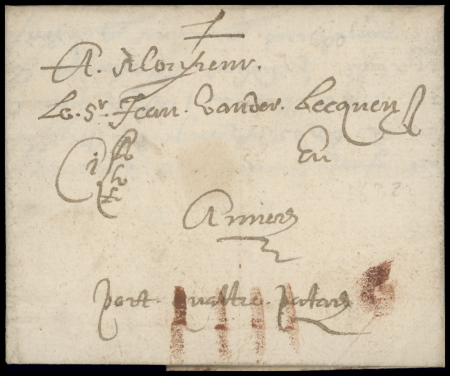 A. Monsieur.
Le. Sr. Jean. Vander. Becquen
En
Anvers
port. quattre. patars